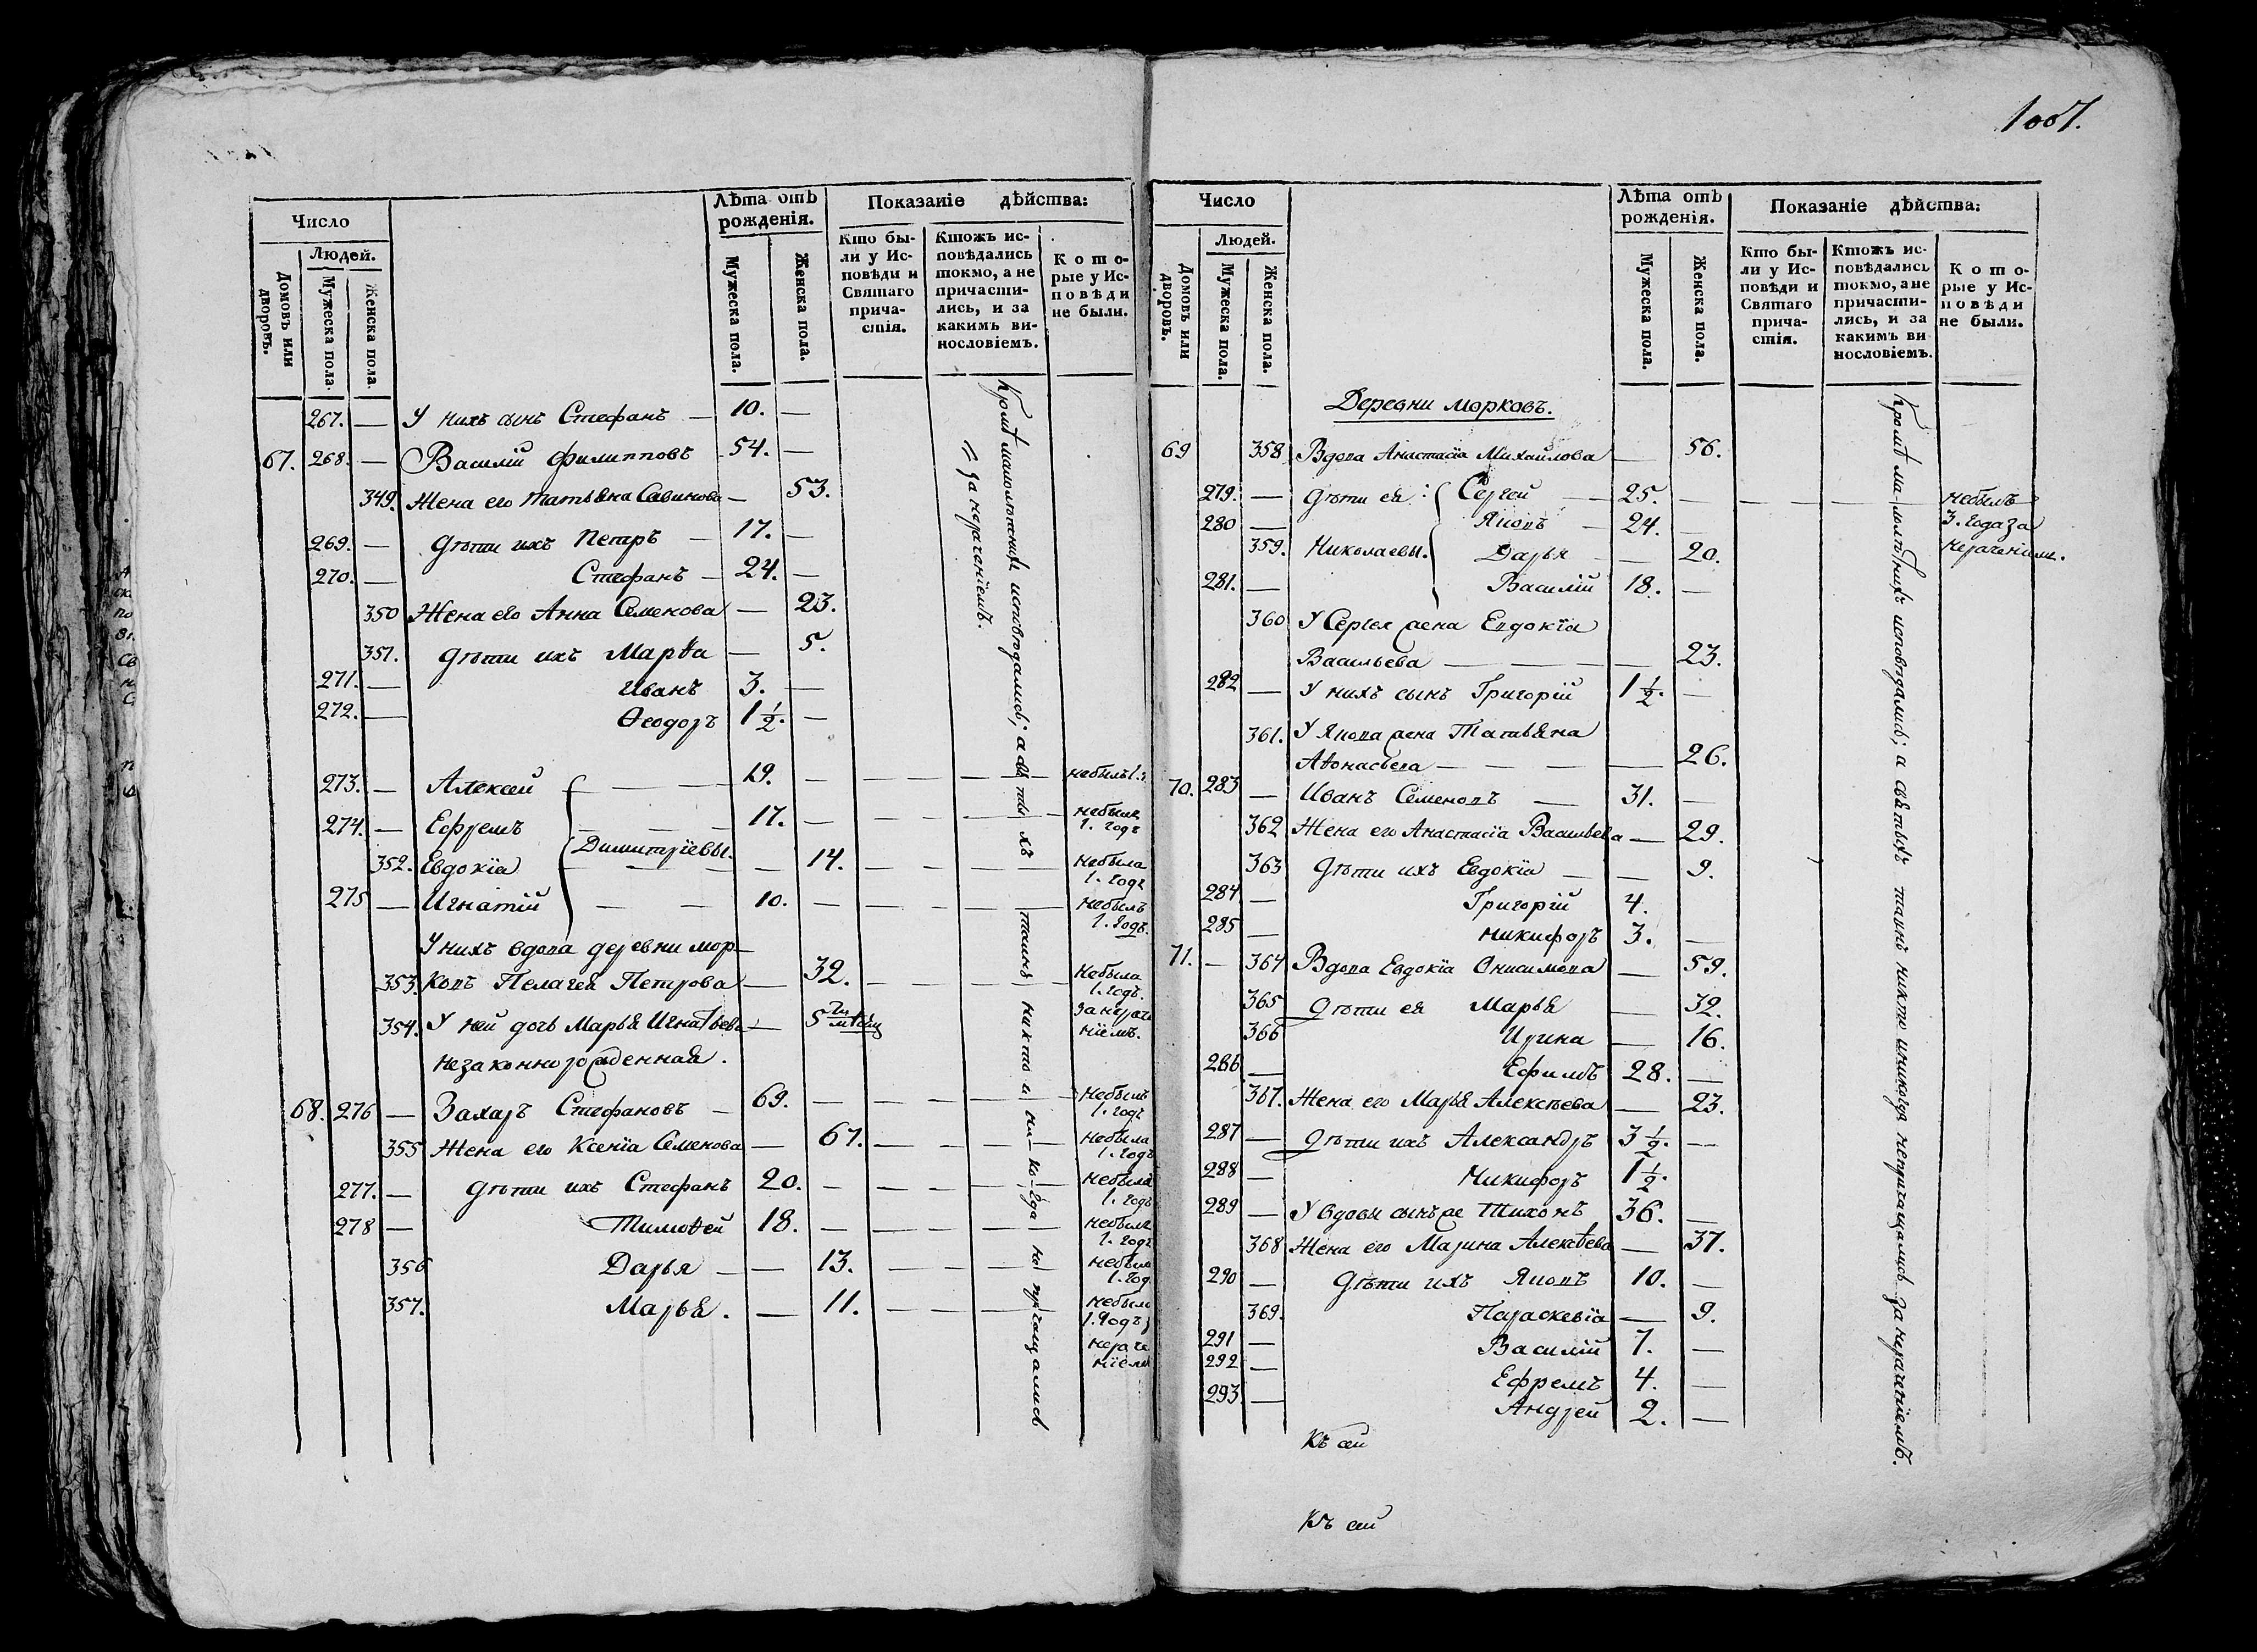 1007.
Число
Людей.
Домовъ или дворовъ.
Мужеска пола.
Женска пола.
Лѣта отъ рожденія.
Мужеска пола.
Женска пола.
Показаніе дѣйства:
Кто бы-
ли у Ис-
повѣди и
Святаго
прича-
стія.
Ктожъ ис-
повѣдались
токмо, а не
причасти-
лись, и за
какимъ ви-
нословіемъ.
К о т о-
рые у Ис-
п о в ѣ д и
не были.
267. — У нихъ сынъ Стефанъ — 10. —
67. 268. — Василій Филипповъ 54. —
349. Жена его Татьяна Савинова — 53.
269. — Дѣти ихъ Петръ — 17. —
270. — Стефанъ — 24. —
350 Жена его Анна Семенова — 23.
351. Дѣти ихъ Марѳа — 5.
271. — Иванъ 3. —
272. — Ѳеодоръ 1 1/2. —
273. — Алексей — — 19. — — — — — небылъ 1.
274. — Ефремъ — — — 17. — — — — — небылъ
1. годъ
Димитріевы.
352. Евдокіа — — — — 14. — — — — небыла
1. годъ
275 — Игнатій — — 10. — — — — — небылъ
1. годъ.
У нихъ вдова деревни мор-
353. ковъ Пелагея Петрова — 32. — — — — небыла
1. годъ.
354. У ней дочь Марья Игнатьева — 5
незаконнорожденная.
за нераче
ніемъ.
68. 276 — Захаръ Стефановъ — 69. — — — — — Небылъ
1. годъ
355 Жена его Ксеніа Семенова — 67. — — — — небыла
1. годъ
277. — Дѣти ихъ Стефанъ 20. — — — — — небылъ
1. годъ
278 — Тимоѳей 18. — — — — — небылъ
1. годъ
356 Дарья — — 13. — — — — небыла
1. год
357. Марья. — 11. — — — — небыла
1. годъ
нераче
ніемъ
Кромѣ малолѣтнихъ исповѣдались; а св тыхъ таинъ никто и ни-ко-гда не прічащались
= за нераченіемъ.
Число
Людей.
Домовъ или дворовъ.
Мужеска пола.
Женска пола.
Лѣта отъ рожденія.
Мужеска пола.
Женска пола.
Показаніе дѣйства:
Кто бы-
ли у Ис-
повѣди и
Святаго
прича-
стія.
Ктожъ ис-
повѣдались
токмо, а не
причасти-
лись, и за
какимъ ви-
нословіемъ.
К о т о-
рые у Ис-
п о в ѣ д и
не были.
Деревни Морковъ.
69 358 Вдова Анастасіа Михайлова — 56.
279. — Дѣти ея: Сергей — 25. — — — — небылъ
280 — Яковъ — 24. — 3. года за
359. Николаевы. Дарья — 20. нераченіем.
281. — Василій 18. —
360 У Сергея жена Евдокіа
Васильева — — — — 23.
282 — У нихъ сынъ Григорій 1 1/2. —
361. У Якова жена Татьяна
Аѳонасьева — — — — 26.
70. 283 — Иванъ Семеновъ — 31. —
362 Жена его Анастасіа Васильева — 29.
363 Дѣти ихъ Евдокіа — — 9.
284 — Григорій 4.
285 — Никифоръ 3. —
71. — 364 Вдова Евдокіа Онисимова — 59.
365 Дѣти ея Марья — 32.
366 Ирина — 16.
286 — Ефимъ 28. —
367. Жена его Марья Алексѣева — 23.
287 — Дѣти ихъ Александръ 3 1/2. —
288 — Никифоръ 1 1/2.
289 — У вдовы сынъ же Тихонъ 36. —
368 Жена его Марина Алексѣева — 37.
290 — Дѣти ихъ Яковъ 10. —
369. Параскевіа — 9.
291 — Василій 7. —
292 — Ефремъ 4. —
293 — Андрей 2. —
Кромѣ малолѣтнихъ исповѣдались; а святыхъ таинъ никто иникогда непричащались за нераченіемъ.
Къ сей
Къ сей